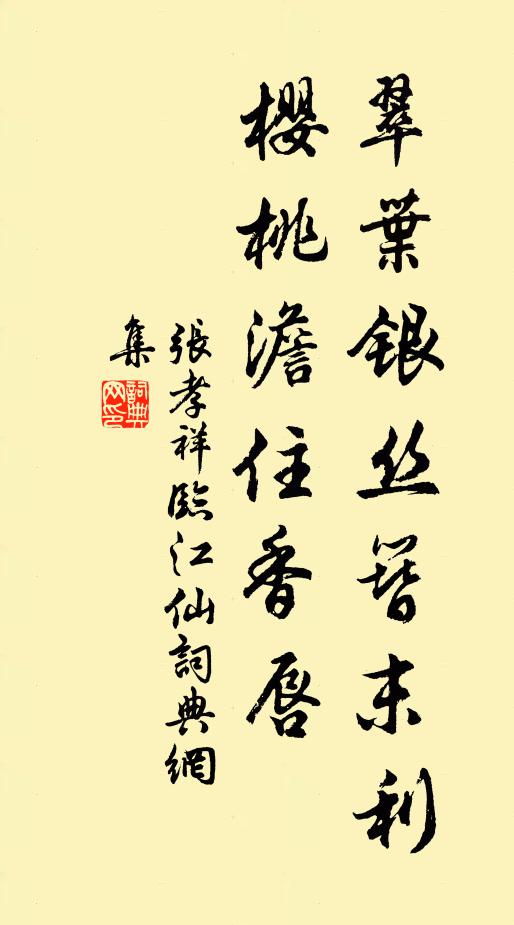 翠葉银丝簪末利
櫻桃澹住香唇
張孝祥臨江仙詞典網
集
詞典網印